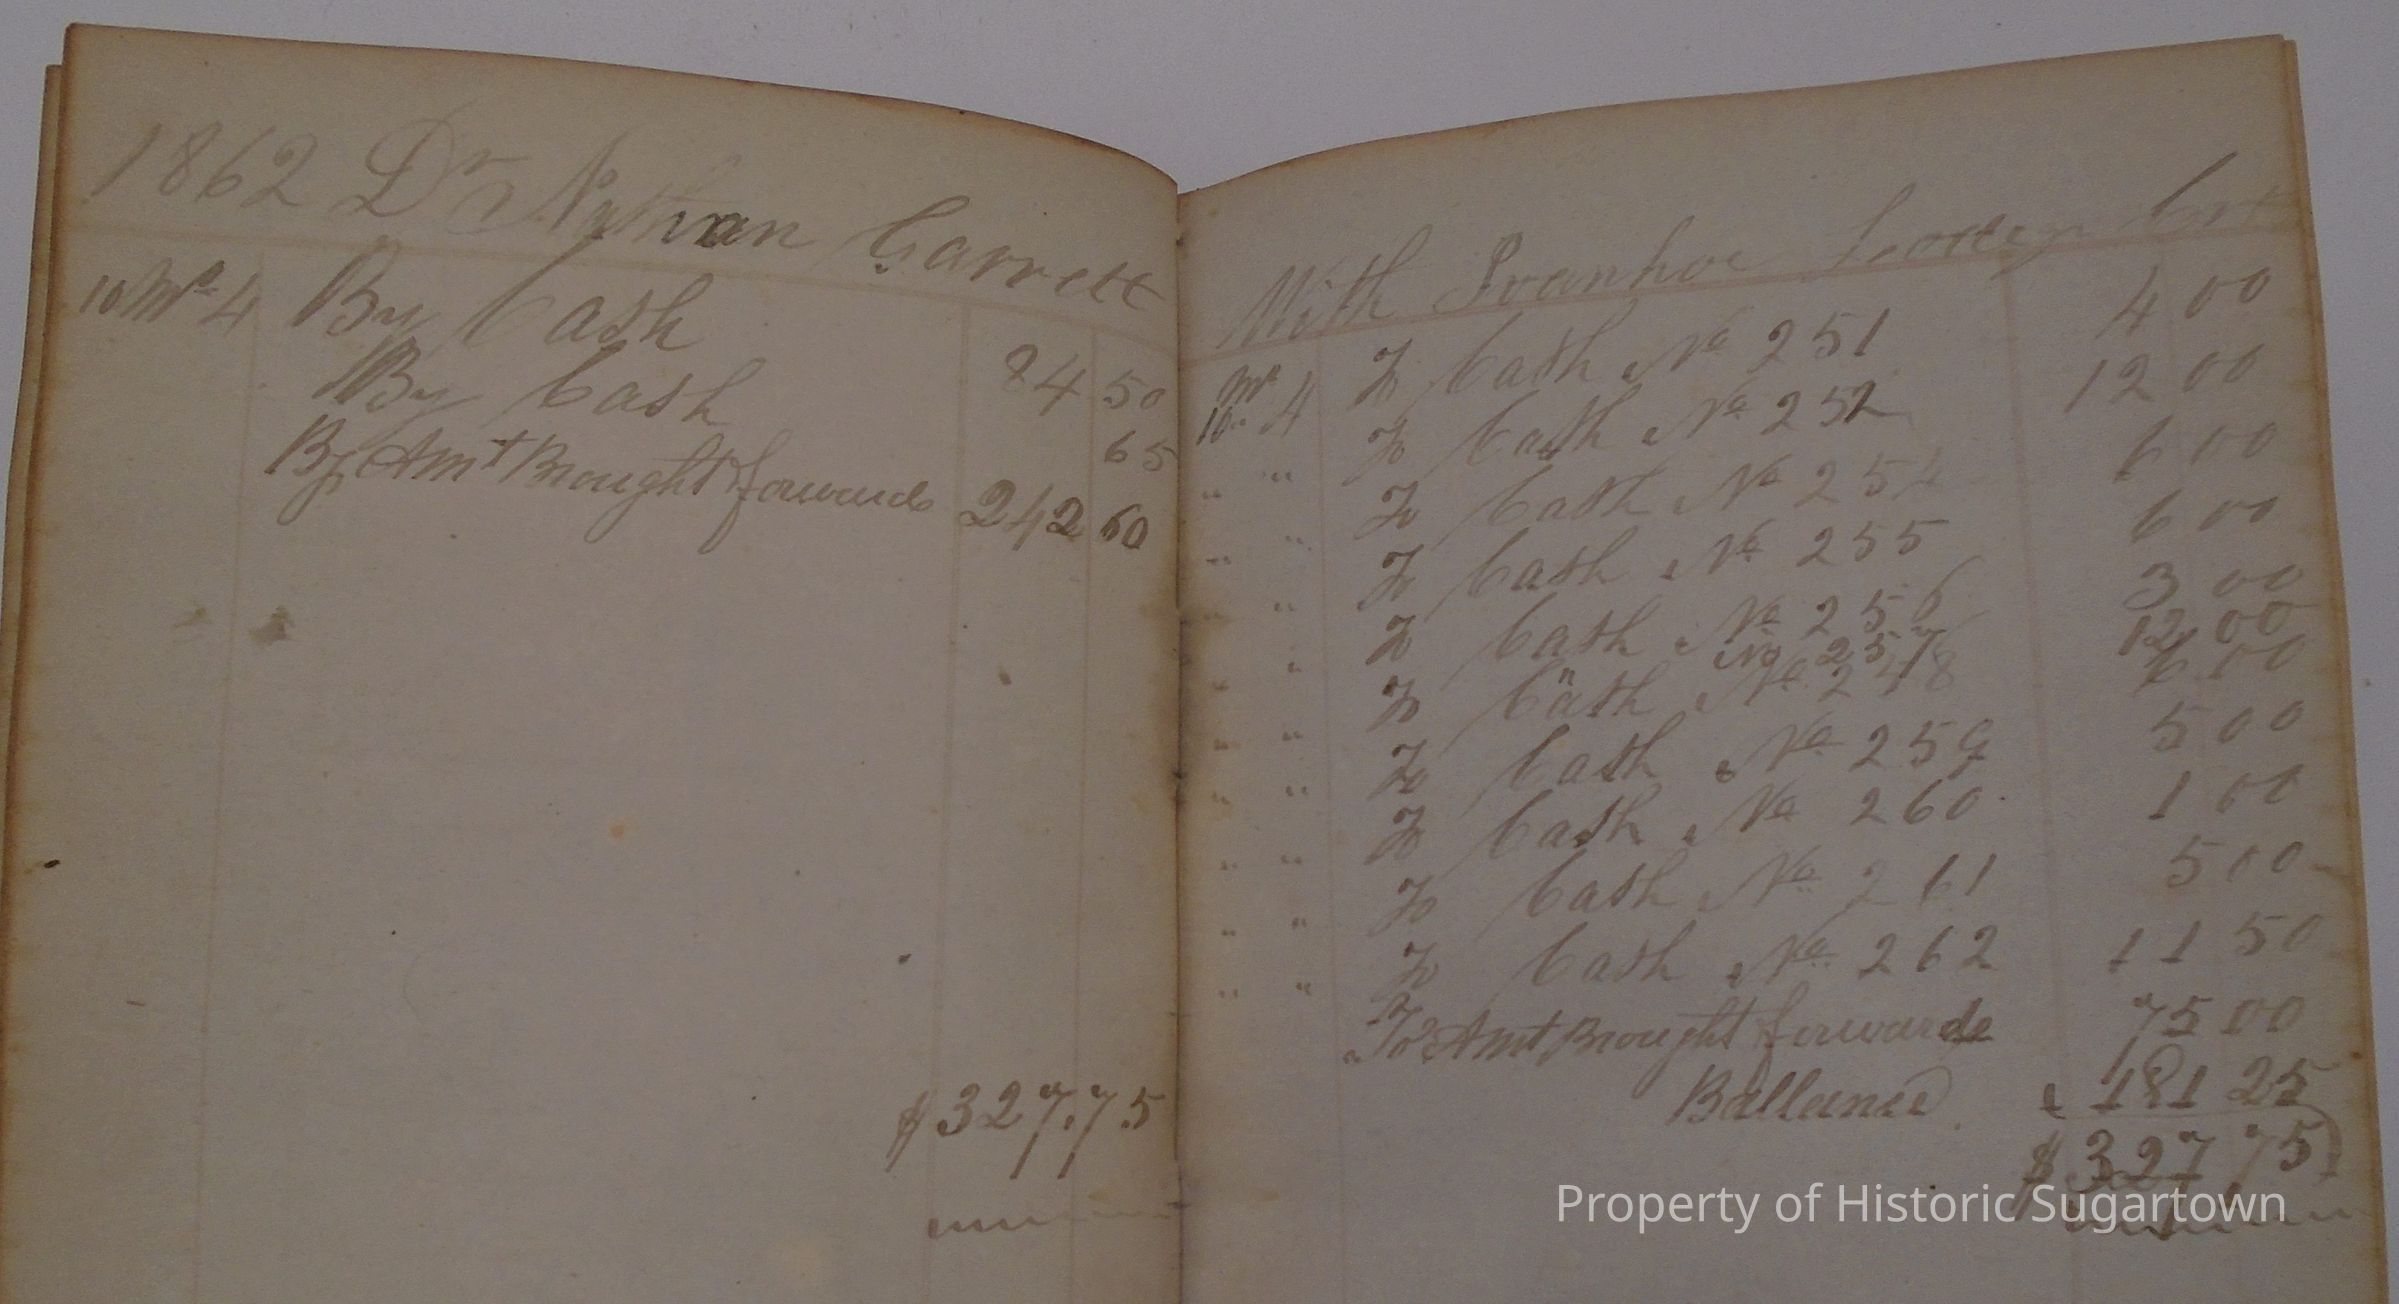 1862 Dr Nathan Garrett
10 Mo 4 By Cash 84 50
By Cash 65
By Amt Brought forwards 242 60
$327.75
With Ivanhoe Lodge Cr
Mo 10 4 To Cash No 251 4 00
" " To Cash No 252 12 00
" " To Cash No 254 6 00
" " To Cash No 255 6 00
" To Cash No 256 3 00
" No 257 12 00
" " To Cash No 248 6 00
" " To Cash No 259 5 00
" " To Cash No 260 1 00
" " To Cash No 261 5 00
" " To Cash No 262 11 50
To Amt Brought forwards 75 00
Ballance 181 25
$327 75
Property of Historic Sugartown